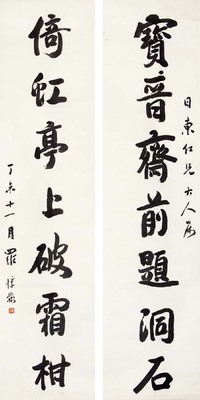 日東仁兄大人屬
寶音齋前題洞石
倚虹亭上破霜柑
丁未十一月羅惇